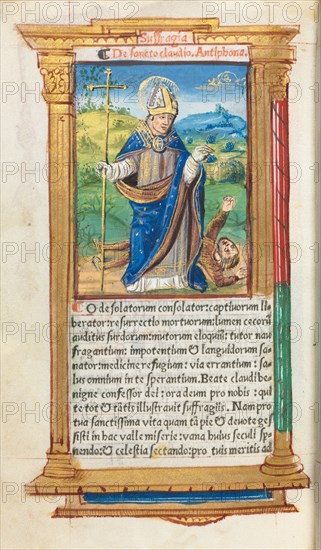 Suffragia
De sancto claudio. Antiphona.
O desolatorum consolator: captiuorum li
berator: resurrectio mortuorum: lumen cecorū
auditus surdorum: mutorum eloquiū: tutor nau
fragantium: impotentium & languidorum sa
nator: medicine refugium: via errantium: sa
lus omnium in te sperantium. Beate claudi be
nigne confessor dei: ora deum pro nobis: qui
te tot & tātis illustrauit suffragiis. Nam pro
tua sanctissima vita quam tā pie & deuote ges
sisti in hac valle miserie: vana huius seculi sp
nendo: & celestia sectando: pro tuis meritis ad